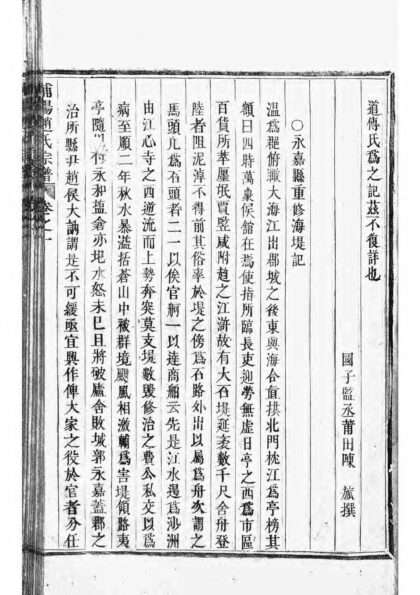 道傳氏爲之記茲不復詳也
國子監丞莆田陳 旅撰
○永嘉縣重修海堤記
溫爲郡俯瞰大海江出郡城之後東與海合直拱北門枕江爲亭榜其
額曰四時萬象候館在焉使指所臨長吏迎勞無虛日亭之西爲市區
百貨所萃廛氓賈竪咸附趋之江滸故有大石堤延袤數千尺舍舟登
陸者阻泥淖不得前其俗率於堤之傍爲石路外出以屬爲舟次謂之
馬頭凡爲石頭者二一以俟官舸一以達商舶云先是江水邊爲沙洲
由江心寺之西通流而上勢奔突莫支堤數毀修治之費公私交以爲
病至順二年秋水暴溢括蒼山中群境颶風相激輔爲害堤傾路夷
亭隨永和鹽倉亦圯水怒未已且將破廬舍敗城郭永嘉蓋郡之
治所縣尹趙侯大訥謂是不可緩亟宜興作俾大家之役於官者分任
浦陽趙氏宗譜 卷之一